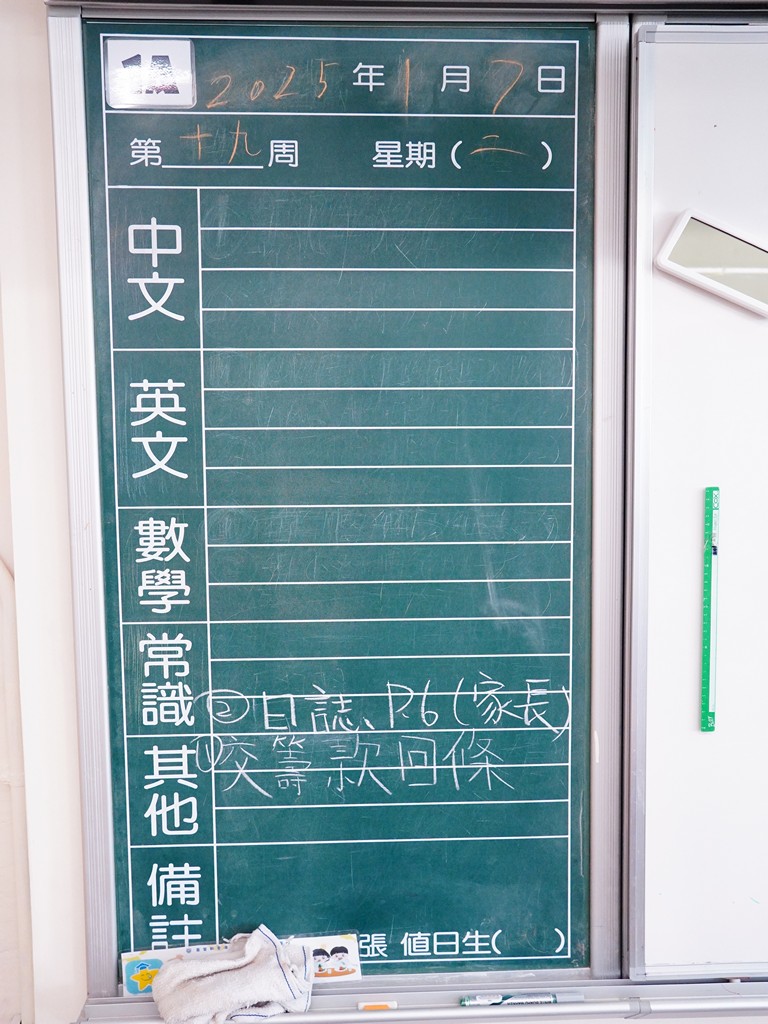 1A 2025年1月7日
第十九周 星期(二)
中文
英文
數學
常識
②日誌、P.6(家長)
其他
①交籌款回條
備註
張 值日生( )